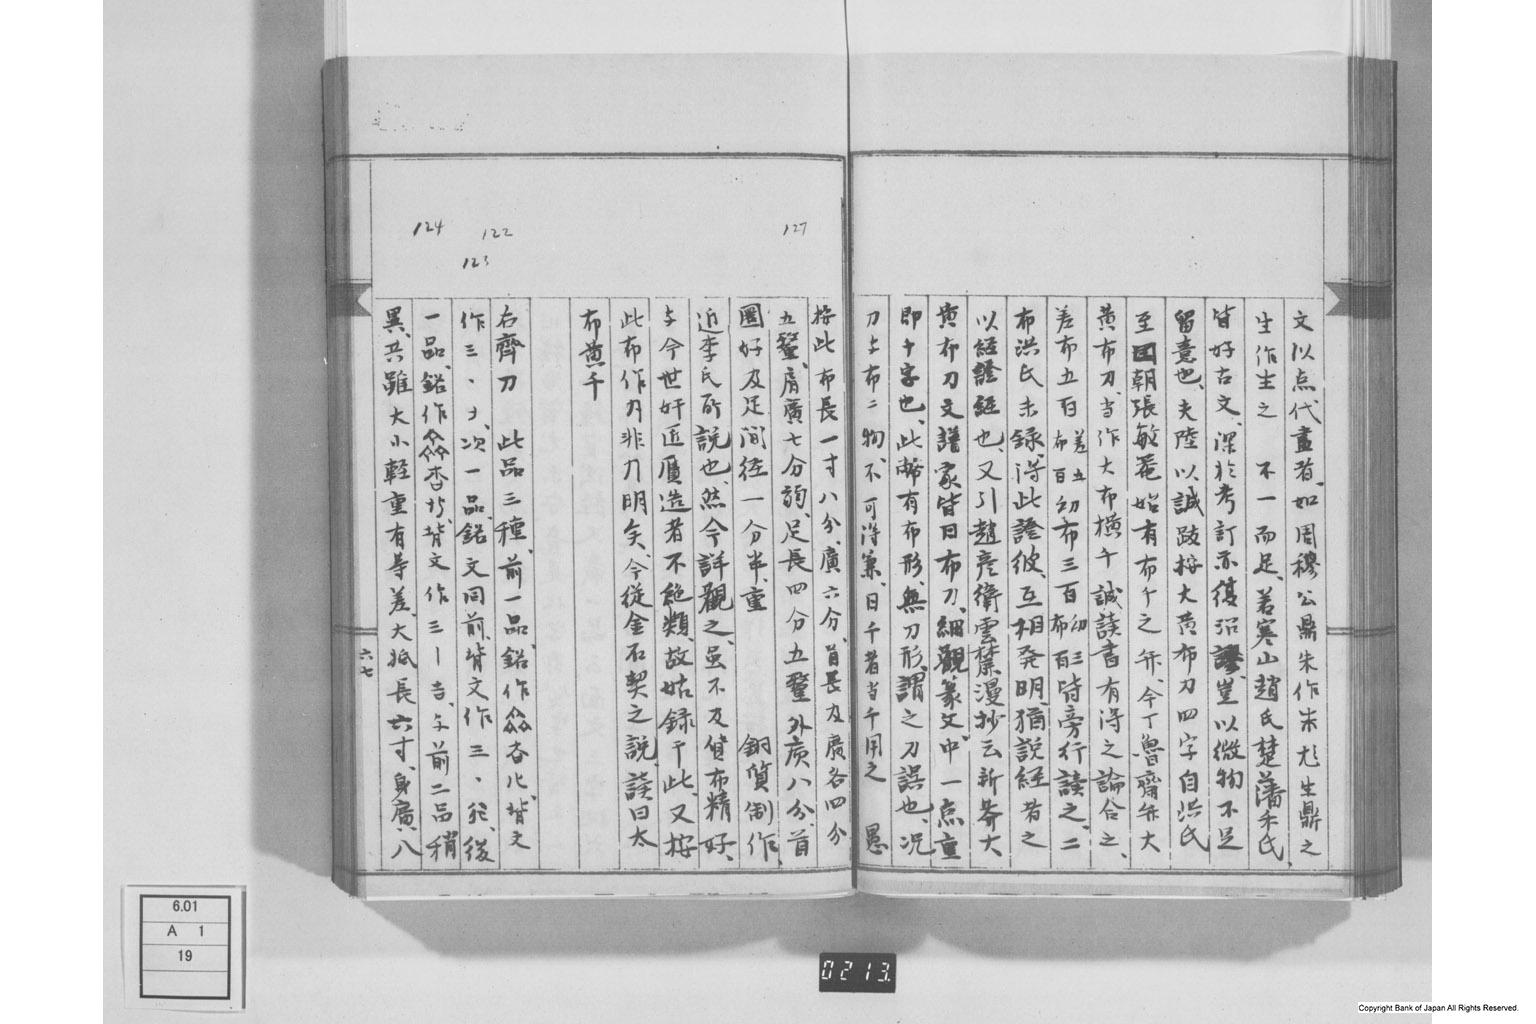 文以点代畫者、如周穆公鼎朱作朱尨生鼎之
生作生之 不一而足、若寒山趙氏楚藩朱氏、
皆好古文、深於考訂亦復沿謬、豈以微物不足
留意也、夫陸以誠跋按大黄布刀四字自洪氏
至國朝張敏菴始有布千之辨、今丁魯齋弁大
黄布刀、当作大布横千 誠讀書有得之論合之、
差布五百 差五 布百 幼布三百 幼三 布百 皆旁行讀之、二
布洪氏未録、得此證彼、互相発明、猶説経者之
以経證経也、又引趙彦衛雲麓漫抄云新莽大
黄布刀文譜家皆曰布刀、細觀篆文中一点重
即十字也、此幣有布形、無刀形、謂之刀誤也、况
刀与布二物、不可得兼、曰千者当千用之 愚
按此布長一寸八分、廣六分、首長及廣各四分
五釐、肩廣七分弱、足長四分五釐外廣八分、首
圏好及足間径一分半、重 銅質制作、
近李氏所説也、然今詳觀之、虽不及貨布精好、
与今世奸匠贋造者不絶類、故姑録于此、又按
此布作刀非刀明矣、今從金石契之説、讀曰太
布黄千
右齊刀 此品三種、前一品、銘作 杏化、背文
作三、𠂇、次一品、銘文同前、背文作三、化、後
一品、銘作 杏 、背文作三ー吉、与前二品稍
異、共雖大小輕重有等差、大抵長六寸、身廣八
六七
127
122
123
124
6.01
A 1
19
0213.
Copyright Bank of Japan All Rights Reserved.